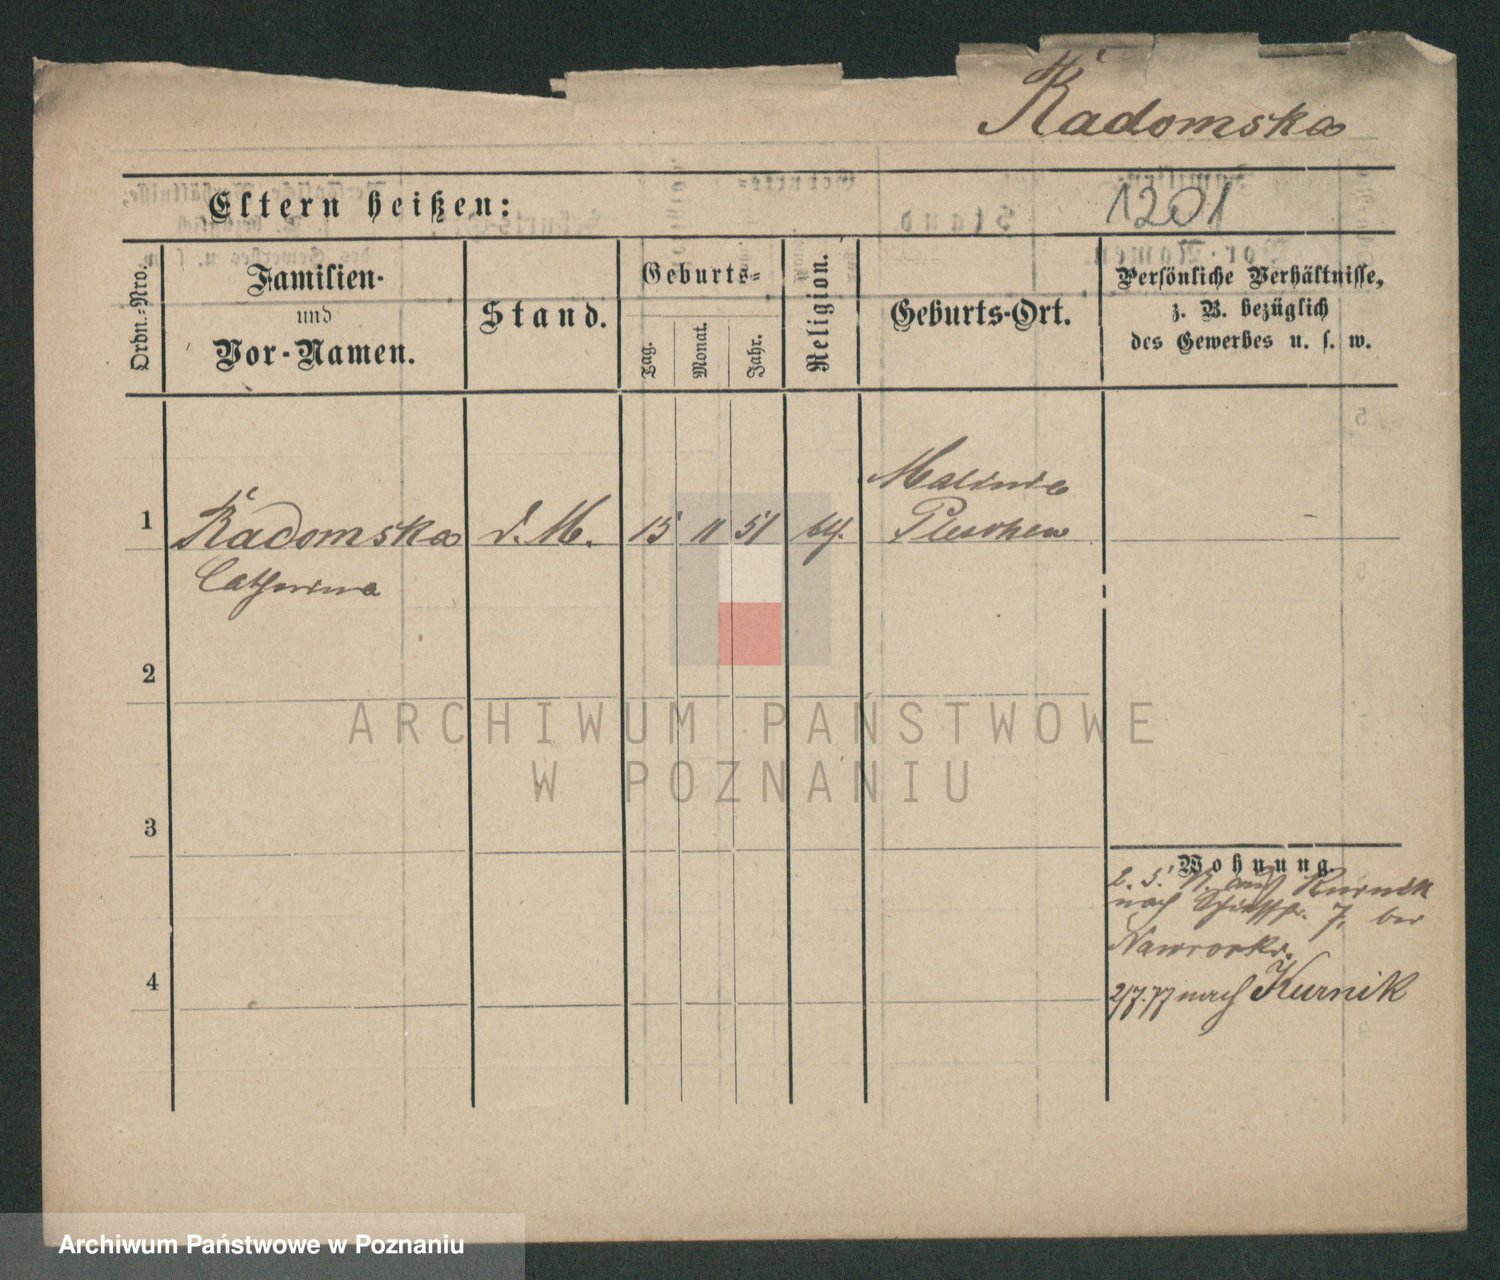 Radomska
1201
Eltern heißen:
Ordn.-Nro.
Familien-
und
Vor-Namen.
Stand.
Geburts-
Tag.
Monat.
Jahr.
Religion.
Geburts-Ort.
Persönliche Verhältnisse,
z. B. bezüglich
des Gewerbes u. s. w.
Malinie
1 Radomska d. M. 15 11 51 kth. Pleschen
Catharina
2
3
4
Wohnung.
2. 5. 77. aus Kurnik
nach 7, bei
Nawrocki.
2/7. 77 nach Kurnik
ARCHIWUM PAŃSTWOWE
W POZNANIU
Archiwum Państwowe w Poznaniu